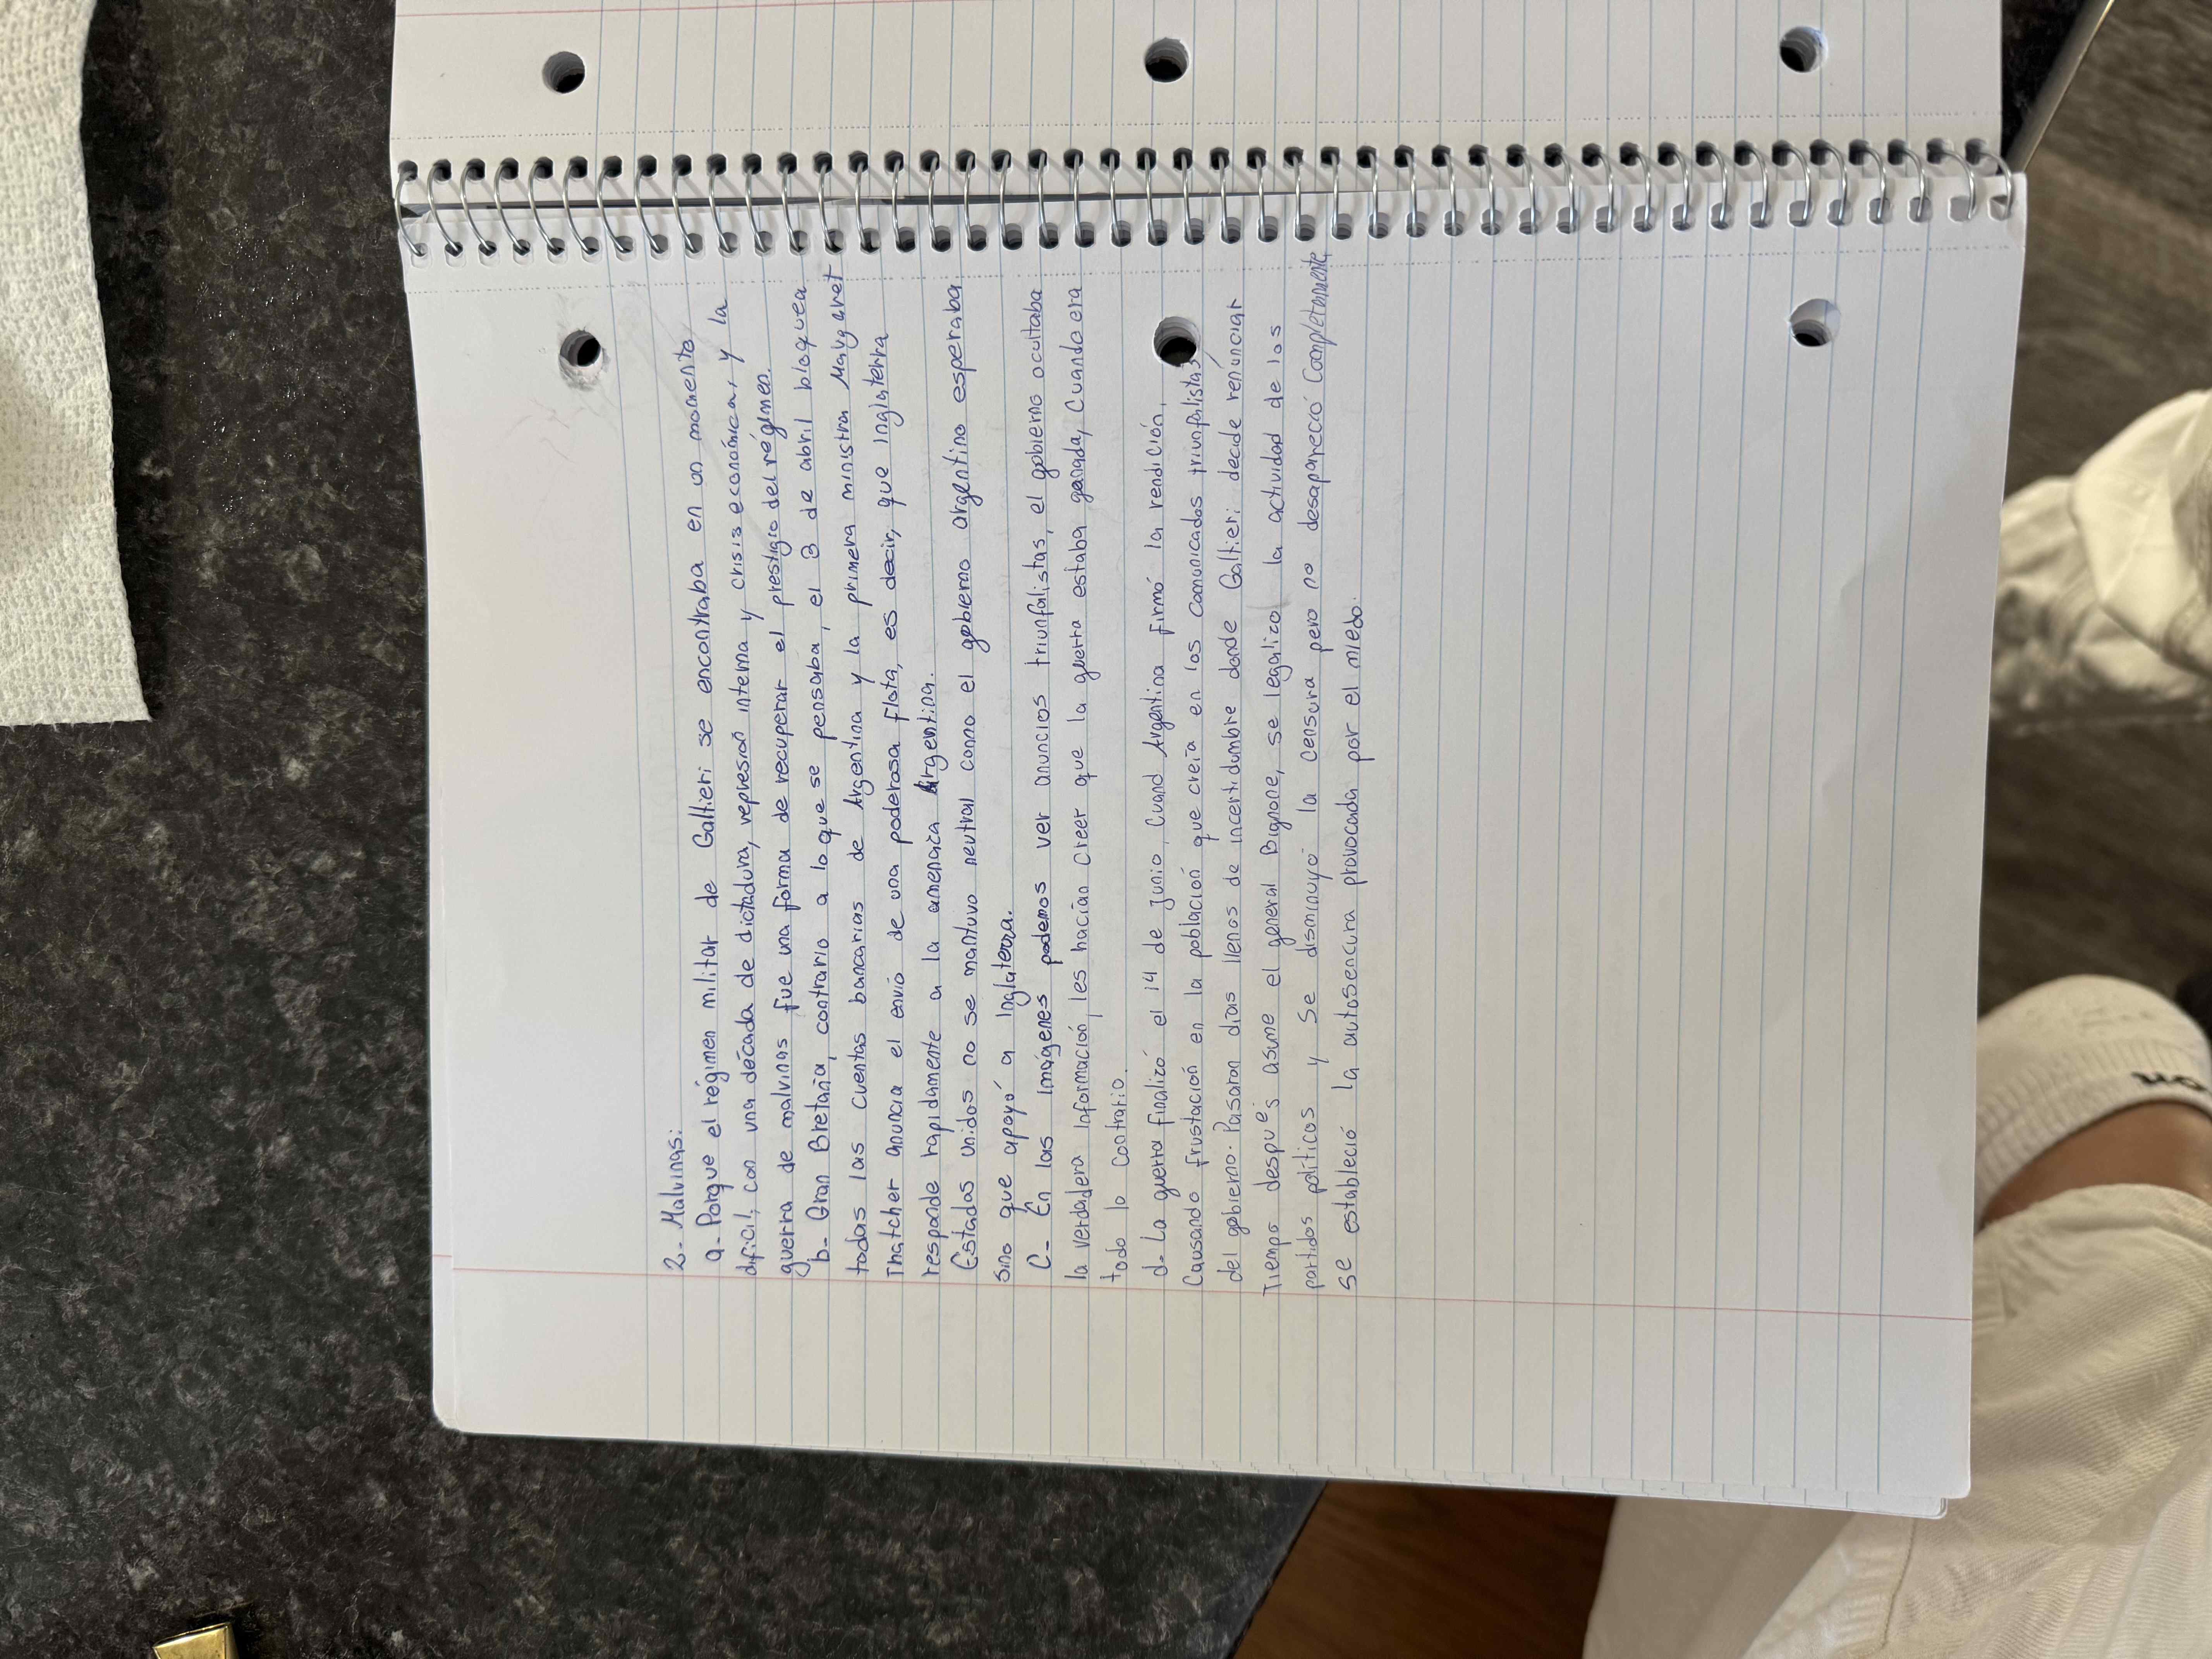 2- Malvinas:
a- Porque el régimen militar de Galtieri se encontraba en un momento
dificil, con una década de dictadura, represión interna y crisis económica, y la
guerra de malvinas fue una forma de recuperar el prestigio del régimen.
b- Gran Bretaña, contrario a lo que se pensaba, el 3 de abril bloquea
todas las cuentas bancarias de Argentina y la primera ministra Margaret
Thatcher anuncia el envió de una poderosa flota, es decir, que Inglaterra
responde rapidamente a la amenaza Argentina.
Estados Unidos no se mantuvo neutral como el gobierno argentino esperaba
sino que apoyó a Inglaterra.
C- En las imágenes podemos ver anuncios triunfalistas, el gobierno ocultaba
la verdadera información, les hacían creer que la guerra estaba ganada, cuando era
todo lo contrario.
d- La guerra finalizó el 14 de junio, cuand Argentina firmó la rendición,
Causando frustación en la población que creía en los comunicados triunfalistas
del gobierno. Pasaron días llenos de incertidumbre donde Galtieri decide renunciar
Tiempo después asume el general Bignone, se legalizo la actividad de los
partidos políticos y se disminuyó la censura pero no desapareció Completamente,
se estableció la autosencura provocada por el miedo.